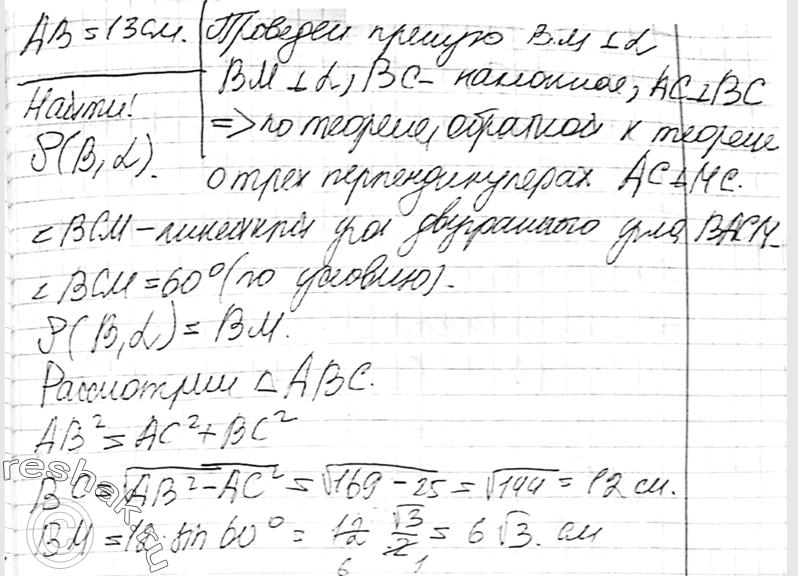 AB = 13 см.
Найти!
ρ(B, α).
Проведем прямую BM ⊥ α
BM ⊥ α, BC - наклонная, AC ⊥ BC
=> по теореме, обратной к теореме
о трех перпендикулярах AC ⊥ MC.
∠BCM - линейный угол двугранного угла BACM
∠BCM = 60° (по условию).
ρ(B, α) = BM.
Рассмотрим △ABC.
AB² = AC² + BC²
BC = √(AB² - AC²) = √(169 - 25) = √144 = 12 см.
BM = 12 · sin 60° = 12 √3/2 = 6√3. см
6 1
reshak.ru